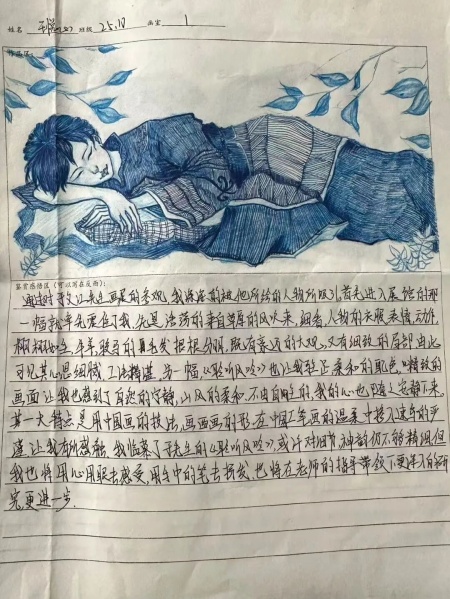 姓名 班级 25.10 画室 1
鉴赏感悟区(可以写在反面):
通过对 先生画展的参观,我深深的被他所绘的人物所吸引,首先进入展馆的那
一幅就率先震住了我,先是浓荡的来自草原的风吹来,细看,人物的衣服表情,动作
栩栩如生,羊羊 的 毛发根根分明,既有豪迈的大观,又有细致的局部由此
可见其心思细腻,工法精湛,另一幅,《聆听风吟》也让我驻足柔和的配色,精致的
画面让我也感到了自然的宁静,山风的柔和,不由自主的,我的心也随之安静下来。
其一大特点是用中国画的技法,画西画的形在中国工笔画的温柔中揉入速写的严
谨让我有所感触,我临摹了 先生的《聆听风吟》,或许对细节,神韵仍不够精细但
我也将用心用眼去感受,用手中的笔去抒发,也将在老师的指导带领下更深入的研
究,更进一步.